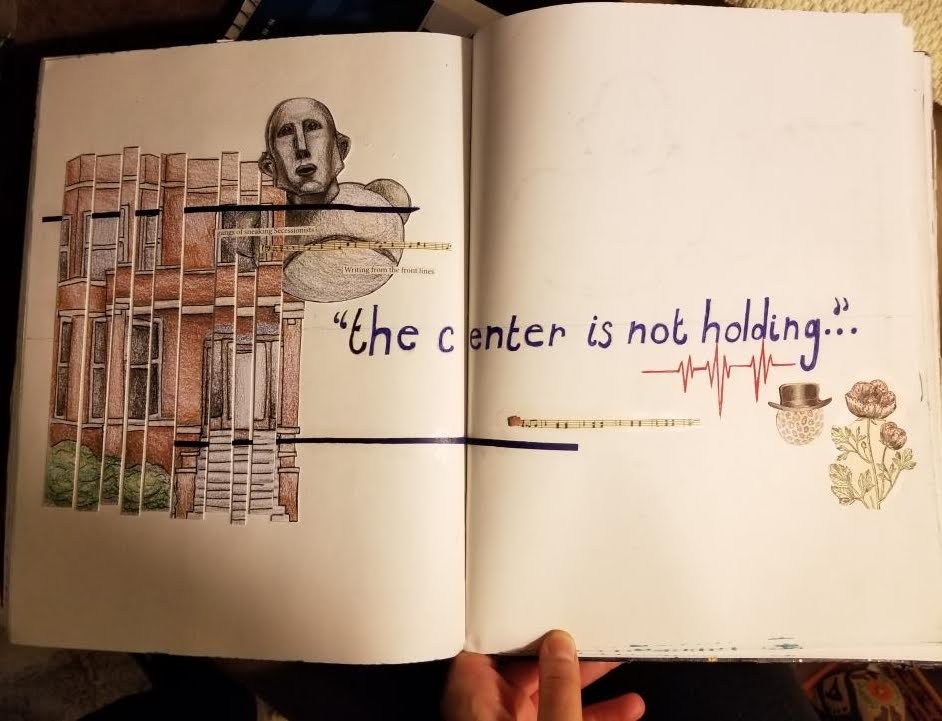 of sneaking Secessionists
Writing from the front lines
"the center is not holding..."